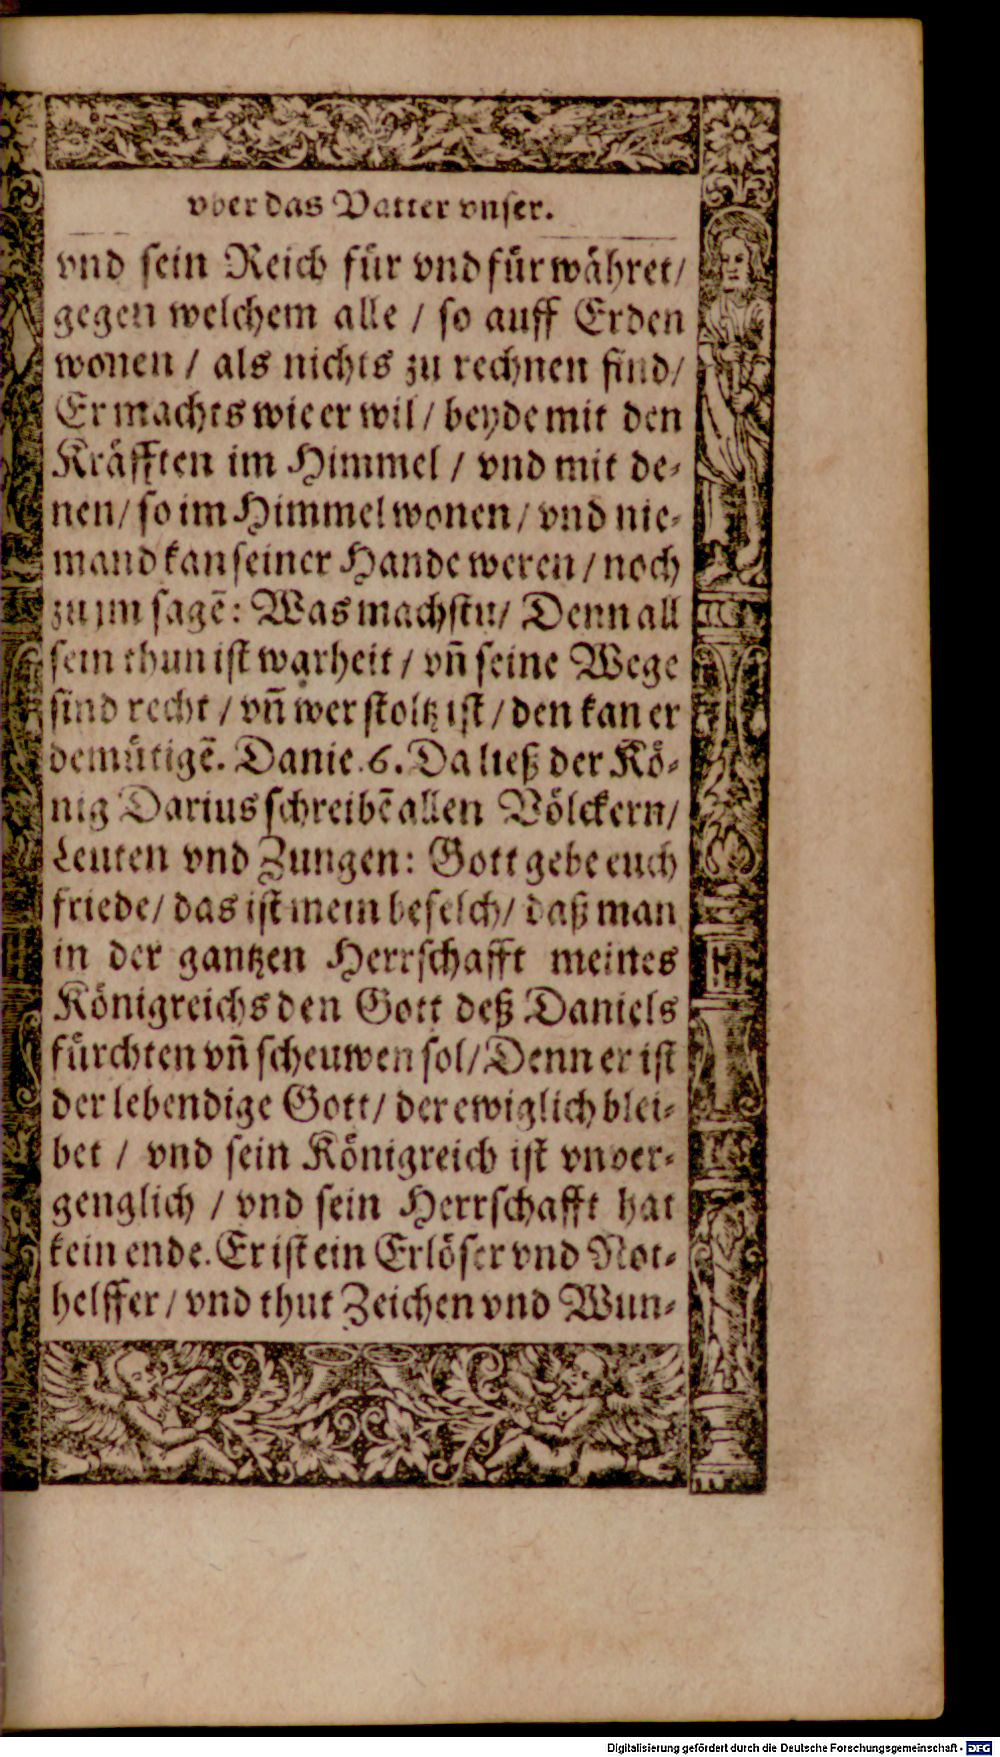 vber das Vatter vnser.
vnd sein Reich für vnd für währet/
gegen welchem alle / so auff Erden
wonen / als nichts zu rechnen sind/
Er machts wie er wil / beyde mit den
Kräfften im Himmel / vnd mit de-
nen/ so im Himmel wonen / vnd nie-
mand kan seiner Hande weren / noch
zu jm sagē: Was machstu/ Denn all
sein thun ist warheit / vn̄ seine Wege
sind recht / vn̄ wer stoltz ist / den kan er
demütigē. Danie. 6. Da ließ der Kö-
nig Darius schreibē allen Völckern/
Leuten vnd Zungen: Gott gebe euch
friede/ das ist mein befelch/ daß man
in der gantzen Herrschafft meines
Königreichs den Gott deß Daniels
fürchten vn̄ scheuwen sol/ Denn er ist
der lebendige Gott/ der ewiglich blei-
bet / vnd sein Königreich ist vnver-
genglich / vnd sein Herrschafft hat
kein ende. Er ist ein Erlöser vnd Not-
helffer / vnd thut Zeichen vnd Wun-
Digitalisierung gefördert durch die Deutsche Forschungsgemeinschaft - DFG